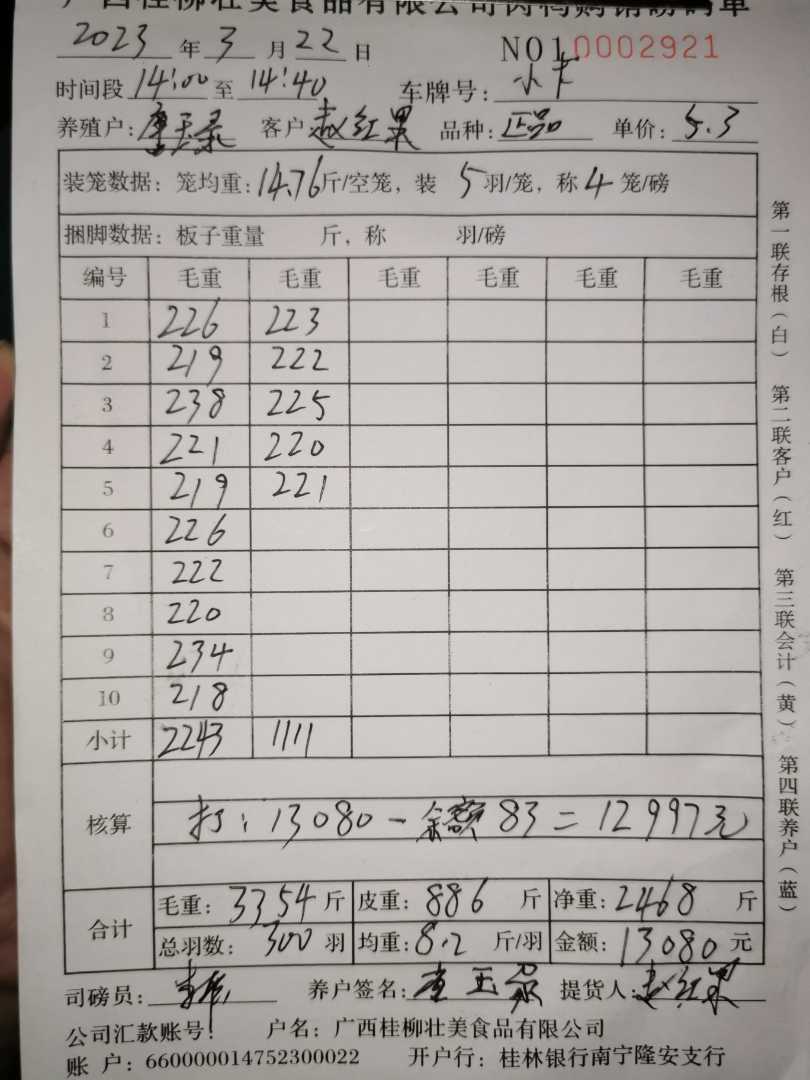 广西桂柳壮美食品有限公司肉鸭购销磅码单
2023年3月22日 NO10002921
时间段14:00至14:40 车牌号:小卡
养殖户: 客户赵红果 品种:正品 单价:5.3
装笼数据:笼均重:14.76斤/空笼,装5羽/笼,称4笼/磅
捆脚数据:板子重量 斤,称 羽/磅
编号 毛重 毛重 毛重 毛重 毛重 毛重
1 226 223
2 219 222
3 238 225
4 221 220
5 219 221
6 226
7 222
8 220
9 234
10 218
小计 2243 1111
核算 打:13080-余额83=12997元
合计 毛重:3354斤 皮重:886斤 净重:2468斤
总羽数:300羽 均重:8.2斤/羽 金额:13080元
司磅员: 养户签名: 提货人:赵红果
公司汇款账号: 户名:广西桂柳壮美食品有限公司
账 户:660000014752300022 开户行:桂林银行南宁隆安支行
第一联存根(白) 第二联客户(红) 第三联会计(黄) 第四联养户(蓝)